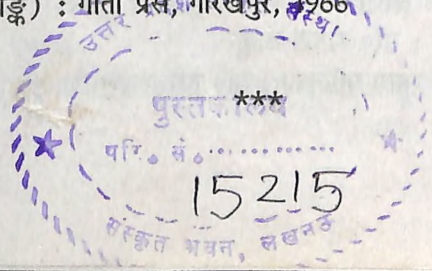 ङ्क) : गीता प्रेस, गोरखपुर, 1966
उत्तर
संस्था
***
पुस्तकालय
परि. सं...............
15215
संस्कृत भवन, लखनऊ